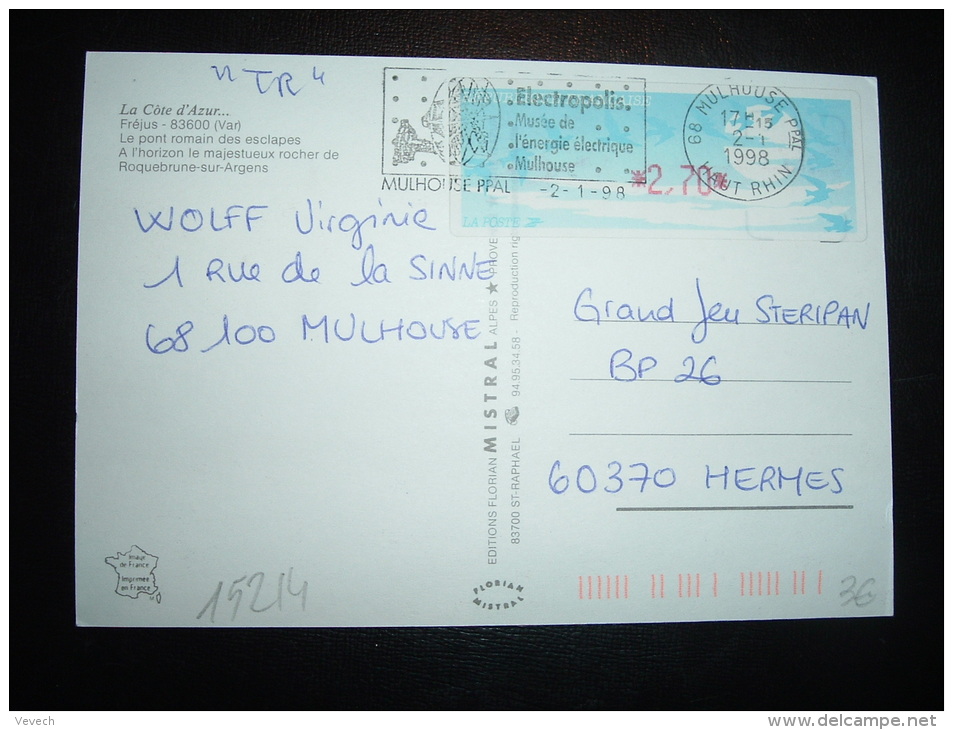 " TR "
La Côte d'Azur...
Fréjus - 83600 (Var)
Le pont romain des esclapes
A l'horizon le majestueux rocher de
Roquebrune-sur-Argens
Electropolis.
Musée de
l'énergie électrique
Mulhouse
MULHOUSE PPAL -2-1-98
68 MULHOUSE PPAL
17H15
2-1
1998
HAUT RHIN
*2,70*
LA POSTE
WOLFF Virginie
1 RUE de la SINNE
68 100 MULHOUSE
EDITIONS FLORIAN MISTRAL ALPES ★ PROVE
83700 ST-RAPHAEL 94.95.34.58 - Reproduction
Grand Jeu STERIPAN
BP 26
60370 HERMES
Image
de France
Imprimée
en France
FLORIAN
MISTRAL
15214
3G
Vevech
www.delcampe.net